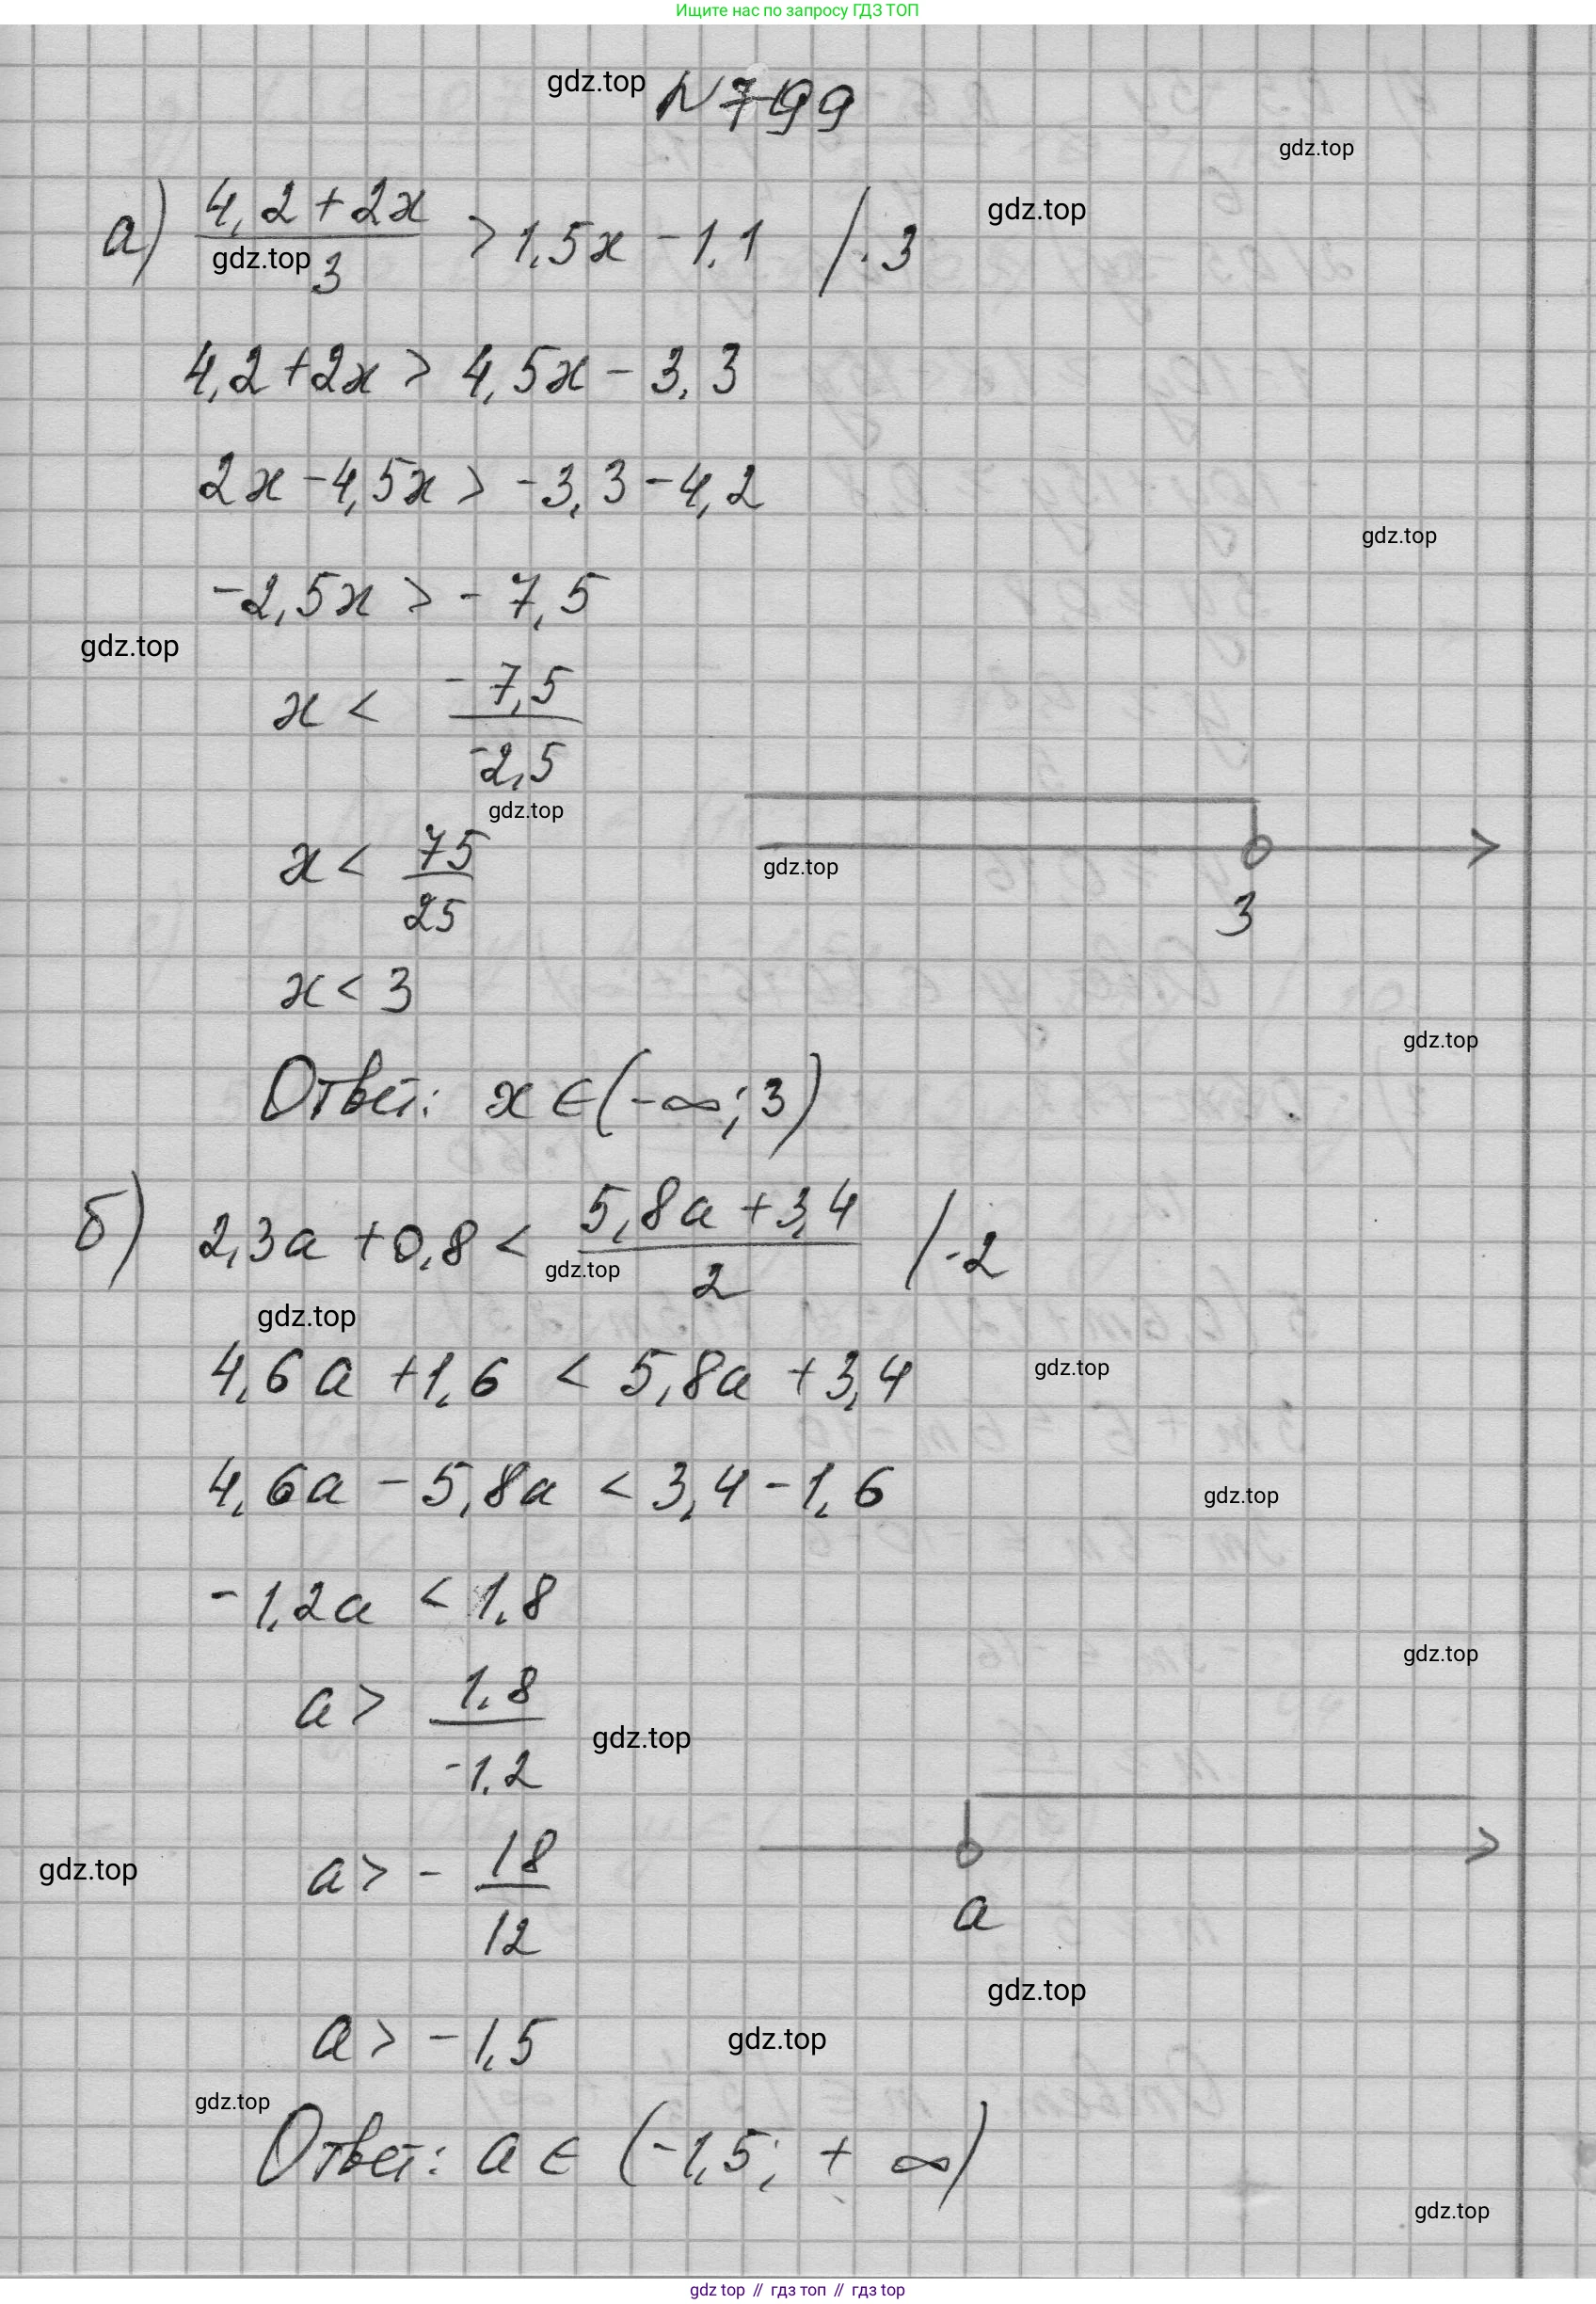 Ищите нас по запросу ГДЗ ТОП
gdz.top
N 799
gdz.top
а) (4,2 + 2x)/3 > 1,5x - 1,1 / · 3
gdz.top
gdz.top
4,2 + 2x > 4,5x - 3,3
2x - 4,5x > -3,3 - 4,2
gdz.top
-2,5x > - 7,5
gdz.top
x < -7,5/-2,5
gdz.top
x < 75/25
gdz.top
3
x < 3
gdz.top
Ответ: x ∈ (-∞; 3)
б) 2,3a + 0,8 < (5,8a + 3,4)/2 / · 2
gdz.top
gdz.top
4,6a + 1,6 < 5,8a + 3,4
gdz.top
4,6a - 5,8a < 3,4 - 1,6
gdz.top
-1,2a < 1,8
gdz.top
a > 1,8/-1,2
gdz.top
gdz.top
a > - 18/12
a
gdz.top
a > - 1,5
gdz.top
gdz.top
Ответ: a ∈ (-1,5; + ∞)
gdz.top
gdz top // гдз топ // гдз top